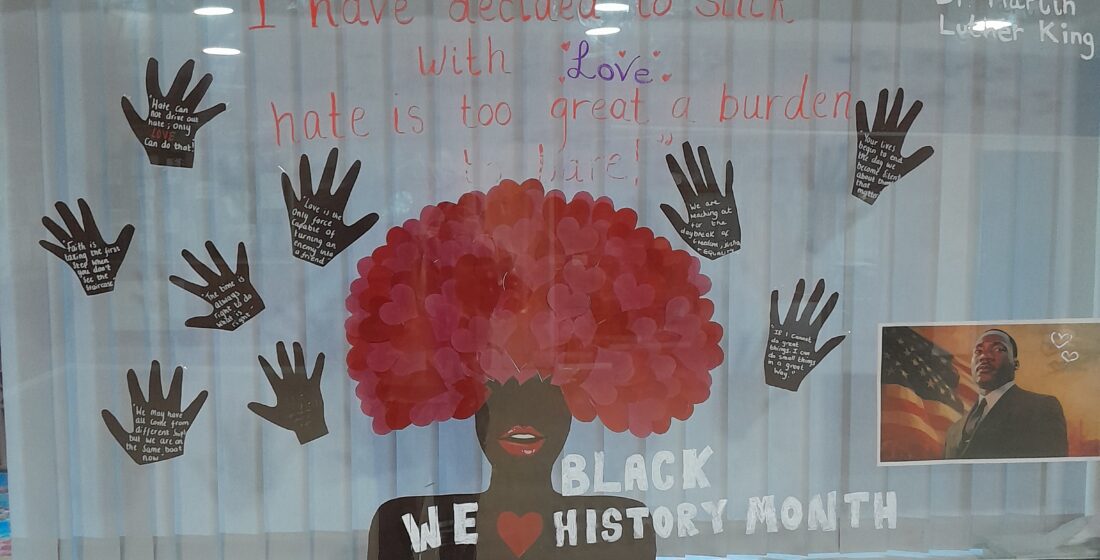 I have decided to stick
Dr. Martin
Luther King
with Love
hate is too great a burden
to bare!"
"Hate, can
not drive out
hate; only
LOVE
Can do that!
"Love is the
Only force
Capable of
turning an
enemy into
a friend
We are
reaching out
for the
daybreak of
freedom,
+ Equality
"Your lives
begin to end
the day we
become silent
about
that
matter
"Faith is
taking the first
Step when
you don't
See the
Staircase
"The time is
always
right to do
what is
right"
"If I cannot
do great
things I can
do small things
in a great
way."
"We may have
all come from
different
but we are on
the same boat
now"
BLACK
WE HISTORY MONTH